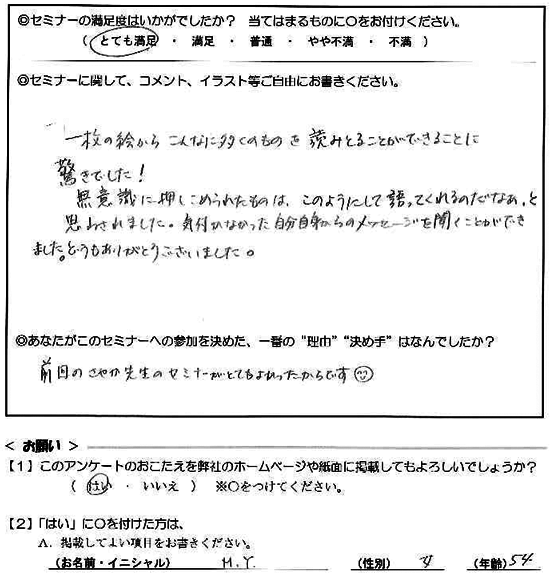 ◎セミナーの満足度はいかがでしたか？ 当てはまるものに○をお付けください。
（ とても満足 ・ 満足 ・ 普通 ・ やや不満 ・ 不満 ）
◎セミナーに関して、コメント、イラスト等ご自由にお書きください。
一枚の絵から こんなに多くのものを 読みとることができることに
驚きでした！
無意識に押しこめられたものは、このようにして語ってくれるのだなあ、と
思わされました。気付かなかった自分自身からのメッセージを聞くことができ
ました。どうもありがとうございました。
◎あなたがこのセミナーへの参加を決めた、一番の "理由" "決め手" はなんでしたか？
前回のさやか先生のセミナーがとてもよかったからです☺
＜ お願い ＞
【１】このアンケートのおこたえを弊社のホームページや紙面に掲載してもよろしいでしょうか？
（ はい ・ いいえ ） ※○をつけてください。
【２】「はい」に○を付けた方は、
A. 掲載してよい項目をお書きください。
（お名前・イニシャル） M.Y. （性別） 女 （年齢） 54